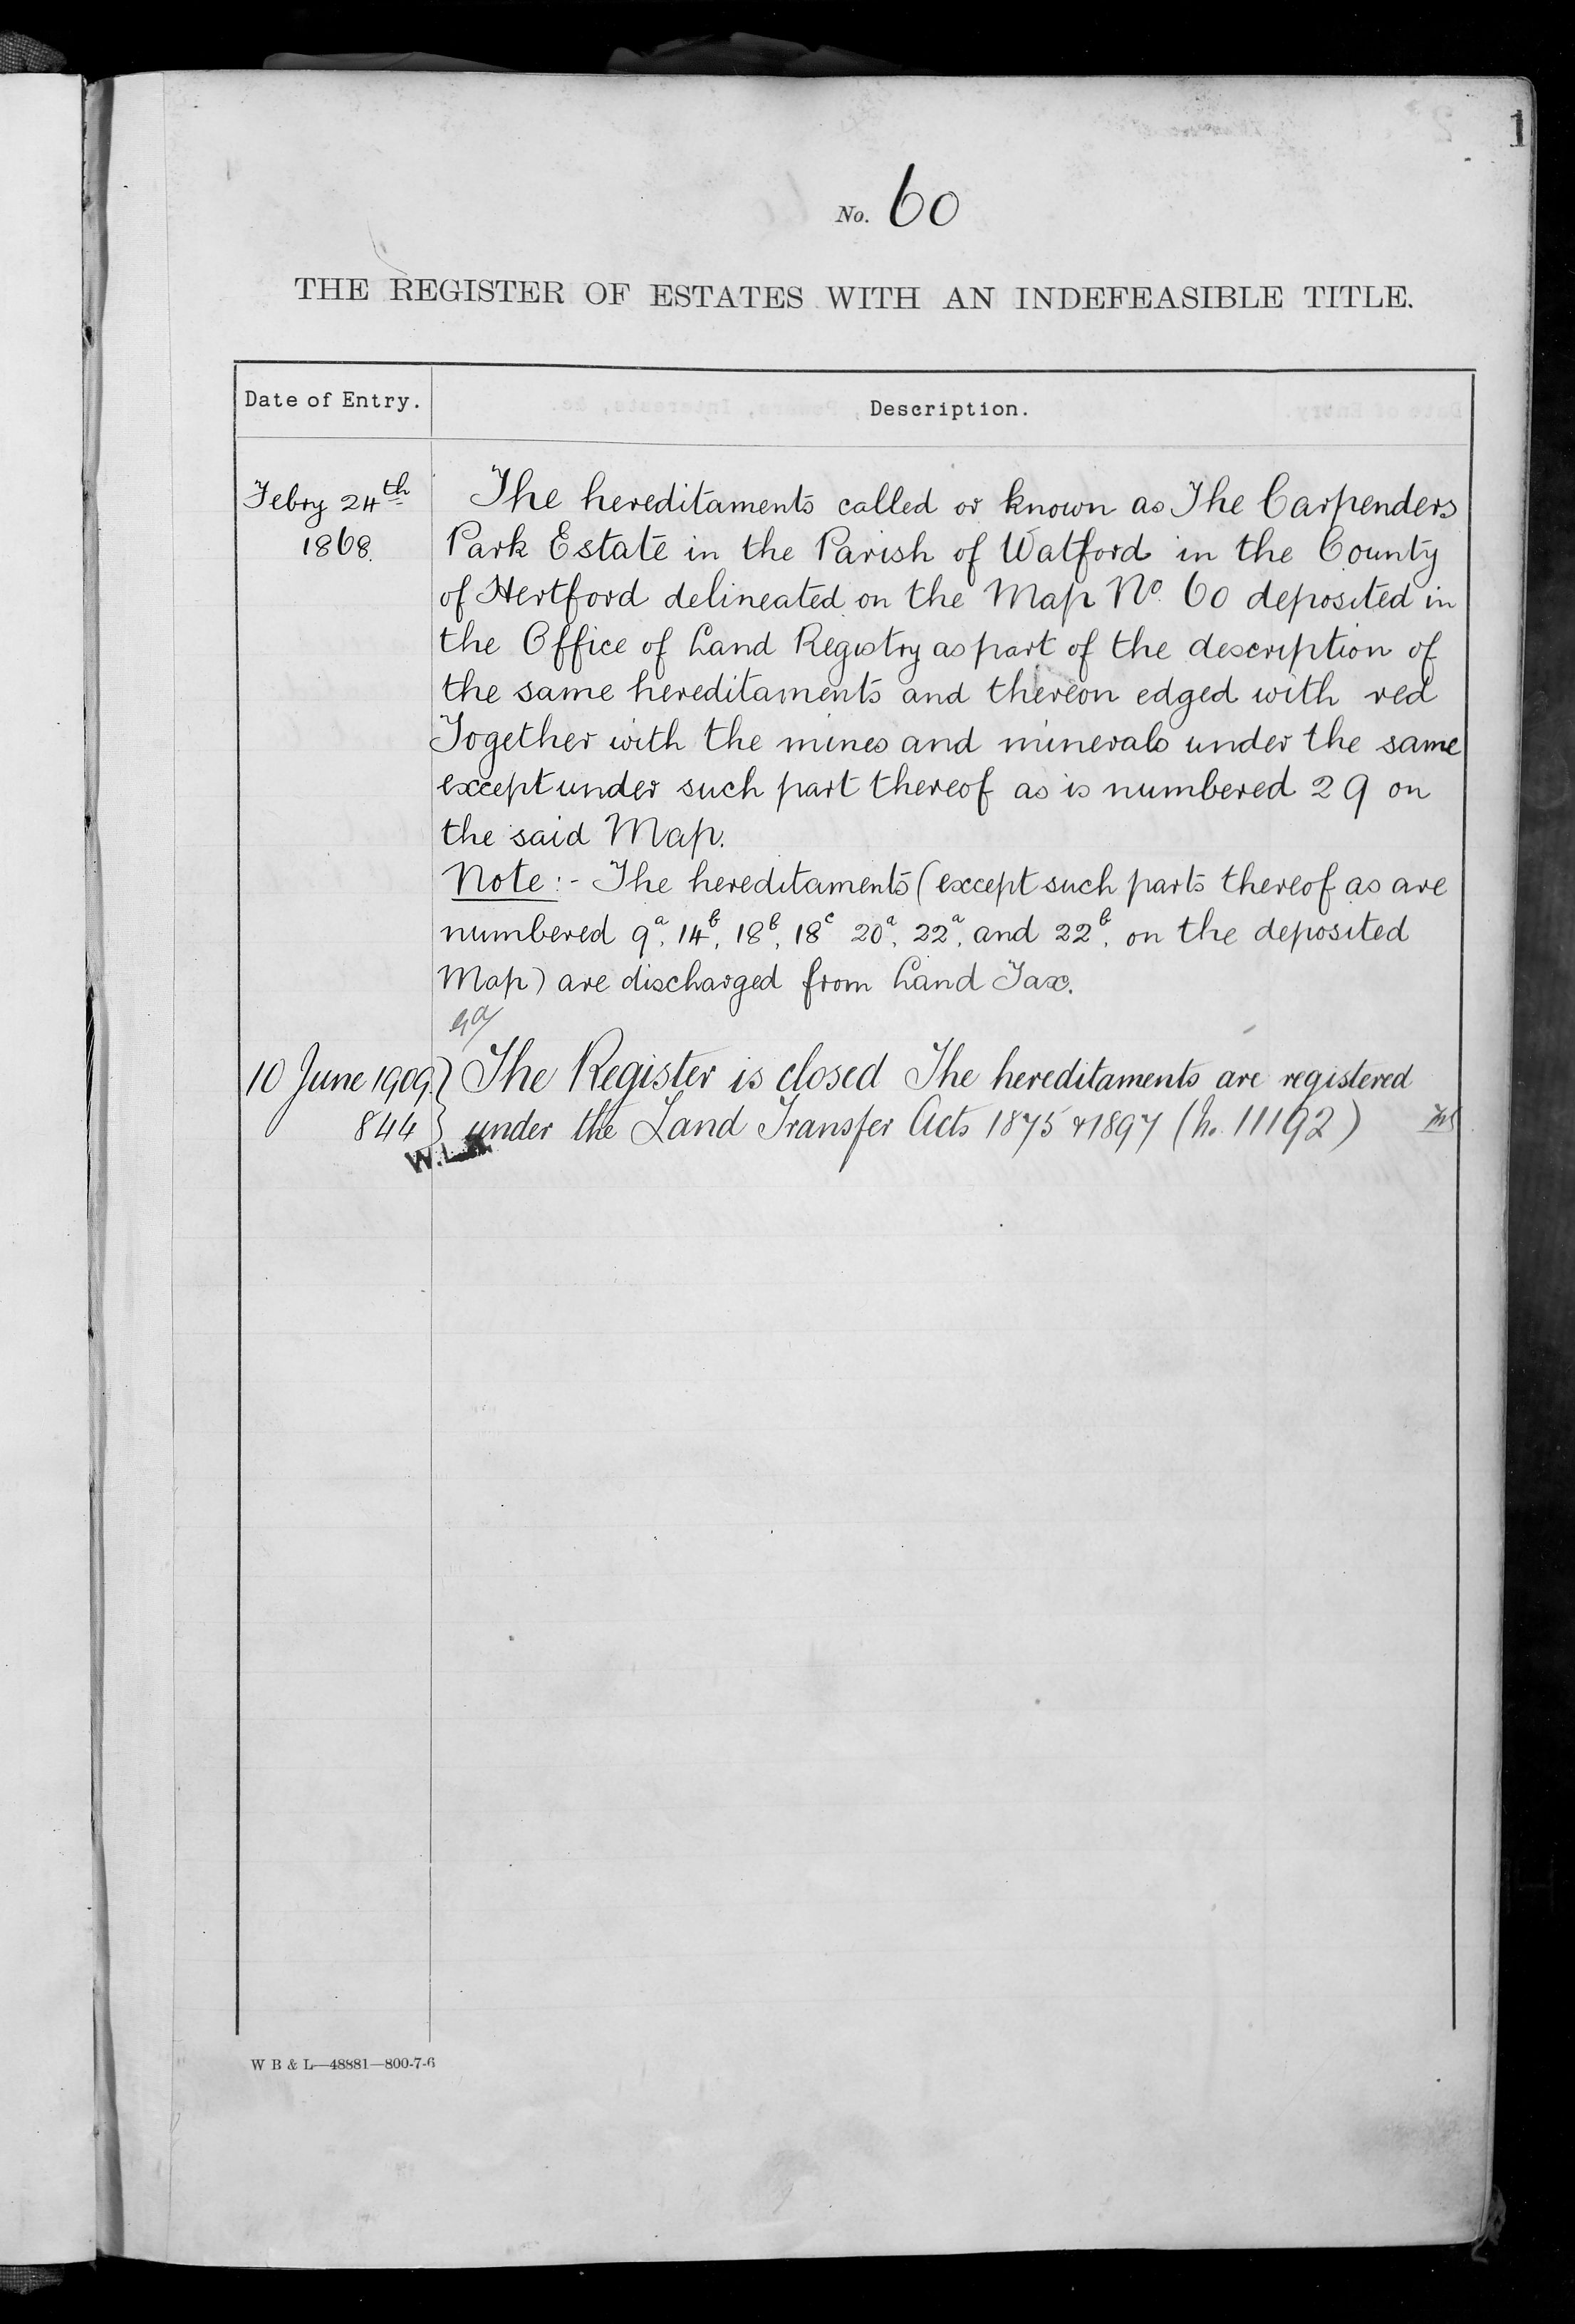 1
No. 60
THE REGISTER OF ESTATES WITH AN INDEFEASIBLE TITLE.
Date of Entry. Description.
Febry 24th The hereditaments called or known as The Carpenders
1868. Park Estate in the Parish of Watford in the County
of Hertford delineated on the Map No. 60 deposited in
the Office of Land Registry as part of the description of
the same hereditaments and thereon edged with red
Together with the mines and minerals under the same
except under such part thereof as is numbered 29 on
the said Map.
Note:- The hereditaments (except such parts thereof as are
numbered 9a, 14b, 18b, 18c 20a, 22a, and 22b, on the deposited
Map) are discharged from Land Tax.
10 June 1909.} The Register is closed The hereditaments are registered
844} under the Land Transfer Acts 1875 & 1897 (h. 11192)
W B & L—48881—800-7-6